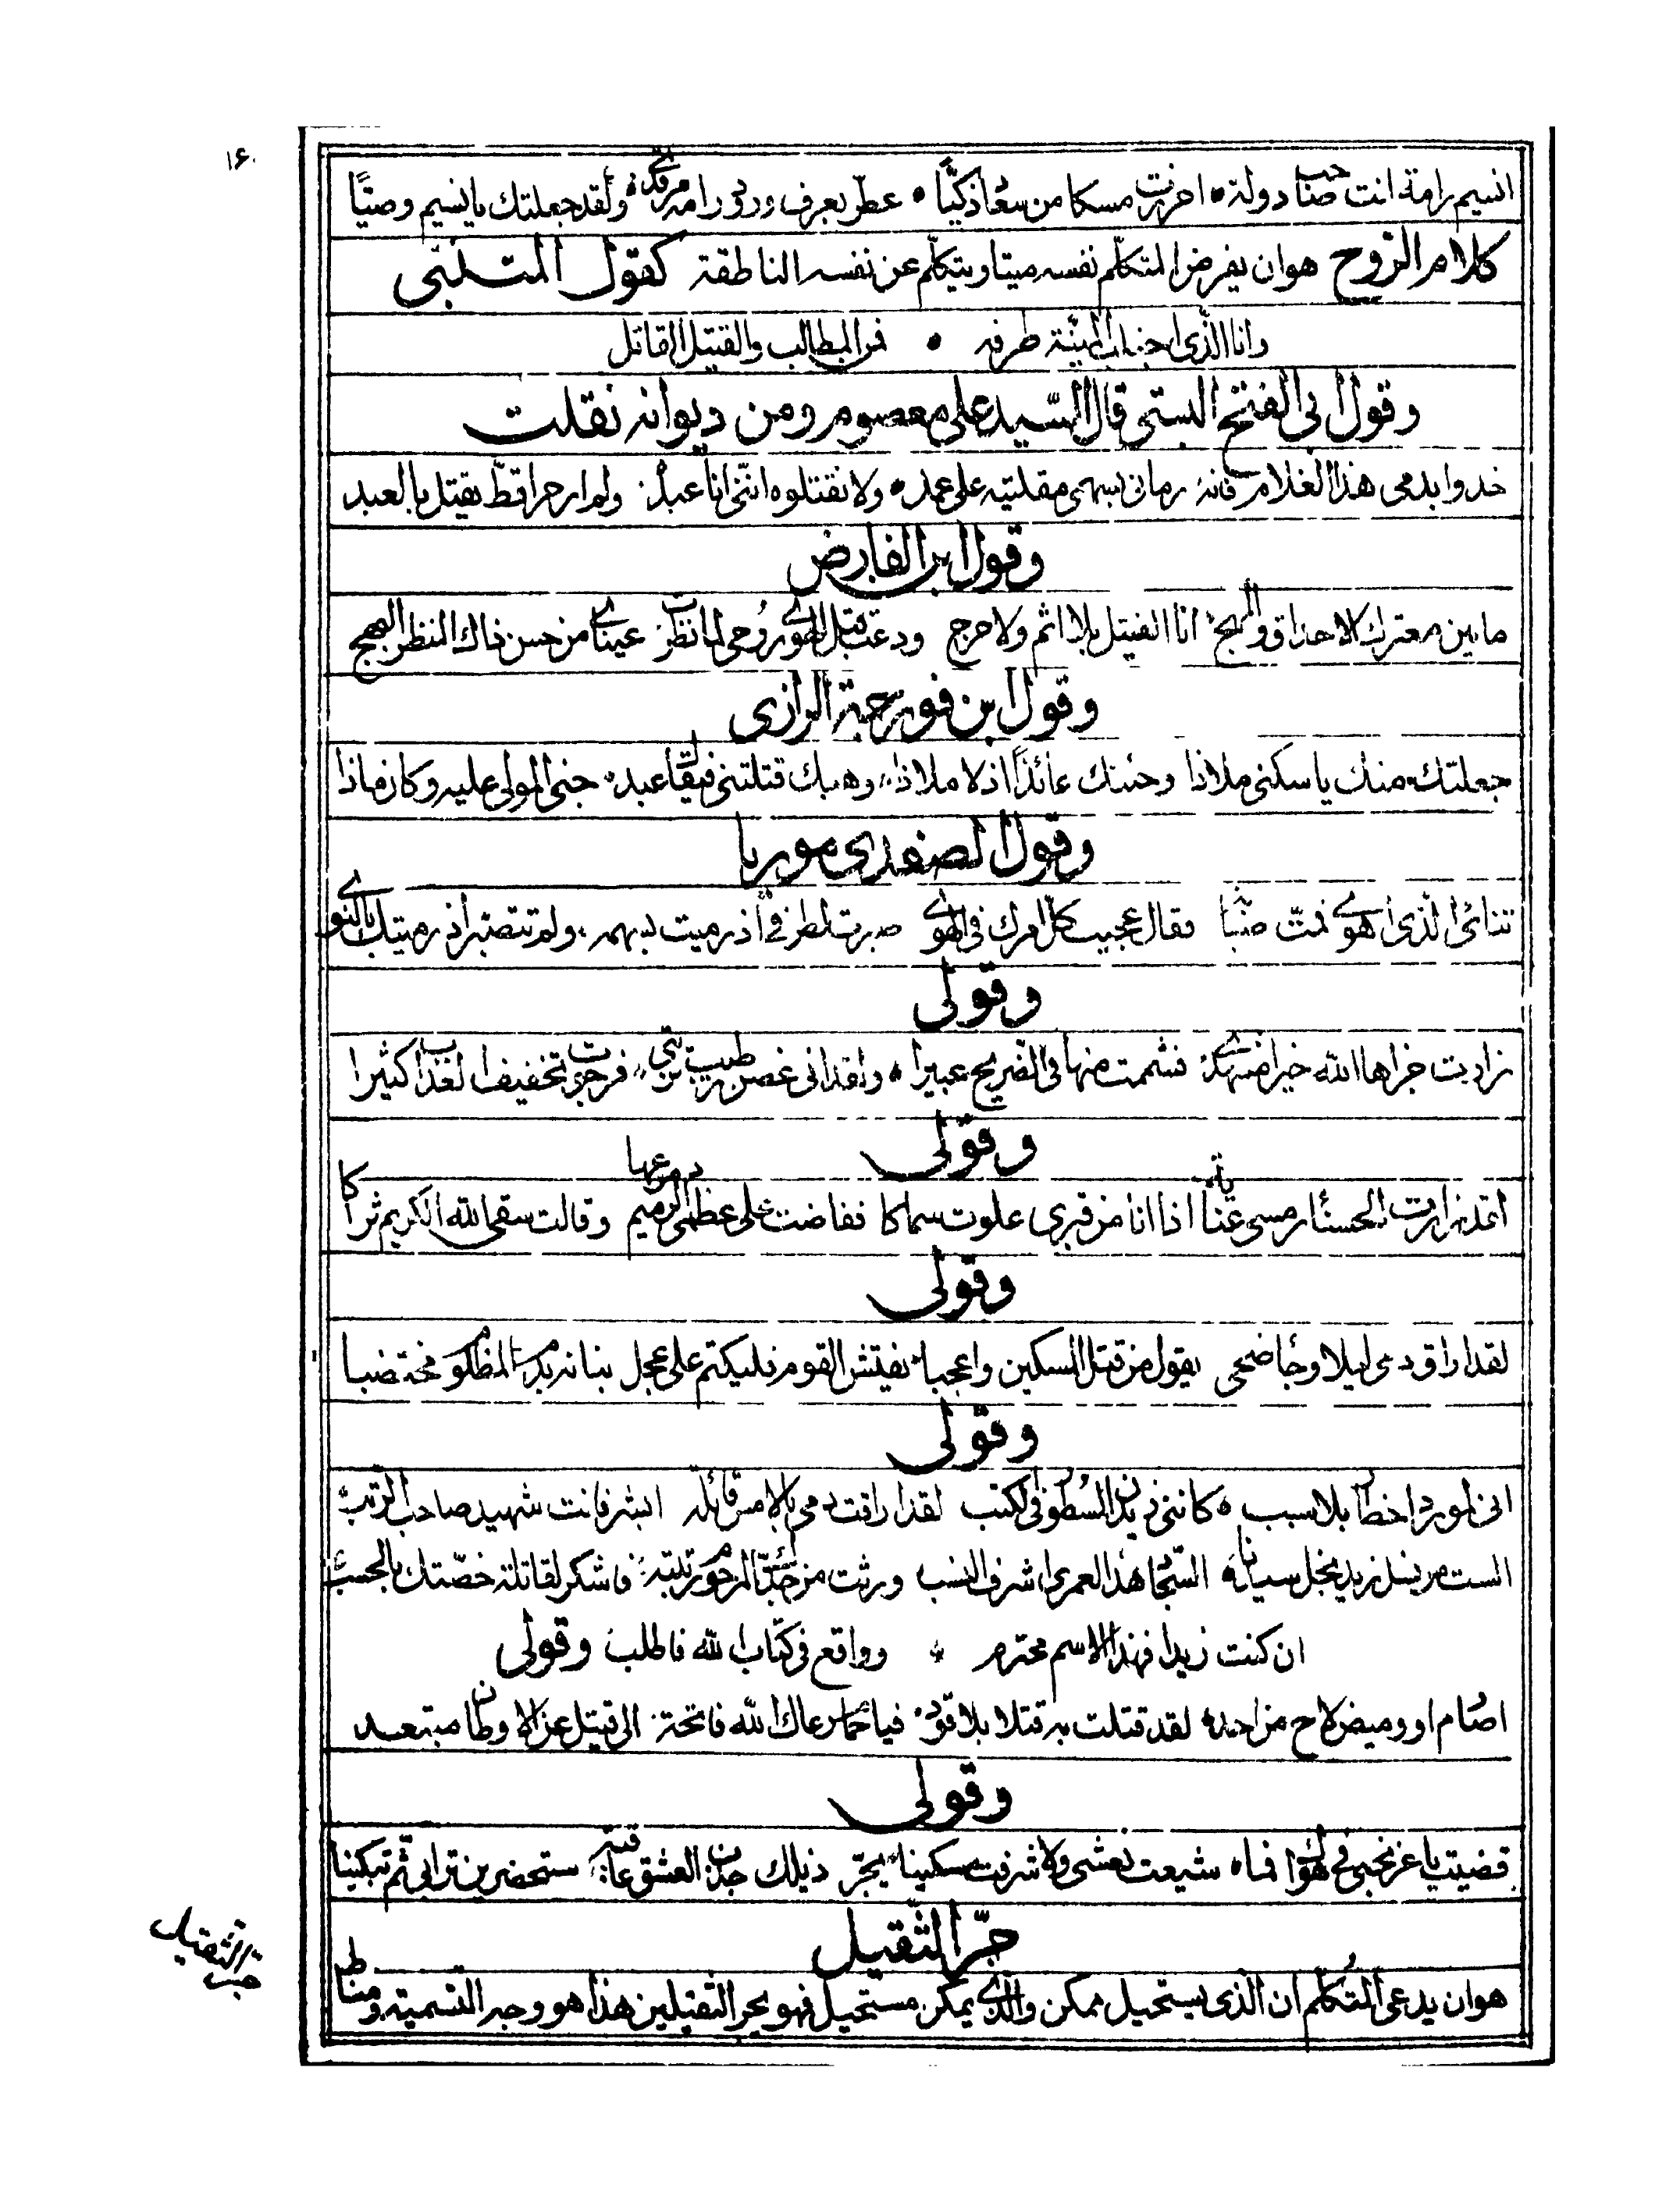 ١۶٠
انسيم رامة انت صاحب دولة احرزت مسكا من سعاد ذكيّا عطّر بعرف ورود رامه مرقدى ولقد جعلتك يا نسيم وصيّا
كلام الروح هو ان يفرض المتكلّم نفسه ميتا ويتكلّم عن نفسه الناطقة كقول المتنبّى
وانا الذى اجتلب المنيّة طرفه فمن المطالب والقتيل القاتل
وقول ابى الفتح البستى قال السّيد على معصوم ومن ديوانه نقلت
خذوا بدمى هذا الغلام فانه رمانى بسهمى مقلتيه على عمد ولا تقتلوه انّنى انا عبده ولم ار حرا قطّ يقتل بالعبد
وقول ابن الفارض
ما بين معترك الاحداق والمهج انا القتيل بلا اثم ولا حرج ودعت قبل الهوى روحى لما نظرت عيناى من حسن ذاك المنظر البهج
وقول ابن فورجة الرازى
جعلتك منك يا سكنى ملاذا وجئتك عائذًا اذ لا ملاذا وهبك قتلتنى فيقال عبد جنى المولى عليه وكان ماذا
وقول الصفدى موريا
تنائى الذى اهوى فمتّ صبّا فقال عجيب كل امرك فى الهوى صبرت لطرفى اذ رميت بسهمه ولم تتصبّر اذ رميتك بالنوى
وقولى
زارت جزاها الله خيرا مشهدى فشممت منها فى الضريح عبيرا
وقولى
اتمّ زارت الحسنا رمسى عناية اذا انا من قبرى علوت سماكا ففاضت على عظمى الرميم دموعها وقالت سقى الله الكريم ثراكا
وقولى
لقد اراق دمى ليلا وجا ضحى يقول من قتل المسكين واعجبا يفتش القوم فليكتم على عجل بنانه بدم المظلوم مختضبا
وقولى
انى لمورد اخطار بلا سبب كاننى زيدن السطور فى الكتب لقد اراقت دمى بالامس قائلة ابشر فانت شهيد صاحب الرتب
الست من نسل زيد نجل سيدنا السّجاد هذا لعمرى اشرف النسب ورثت من جدّك المرحوم رتبته فاشكر لقاتلة خصّتك بالحسب
ان كنت زيدا فهذا الاسم محترم وواقع فى كتاب الله فاطلب وقولى
اصارم او وميض لاح من احد لقد قتلت به قتلا بلا قود فيا حمام رعاك الله فاتحة الى قتيل عن الاوطان مبتعد
وقولى
قضيت يا عز نحبى فى هواك فما شيعت نعشى ولا شرفت مسكينا يجرّ ذيلك جذب العشق عاقبة ستحضرين ترابى ثم تبكينا
جرّ الثّقيل
هو ان يدعى المتكلم ان الذى يستحيل ممكن والذى يمكن مستحيل فهو يجر الثقيلين هذا هو وجه التسمية ومناط
جر الثقيل